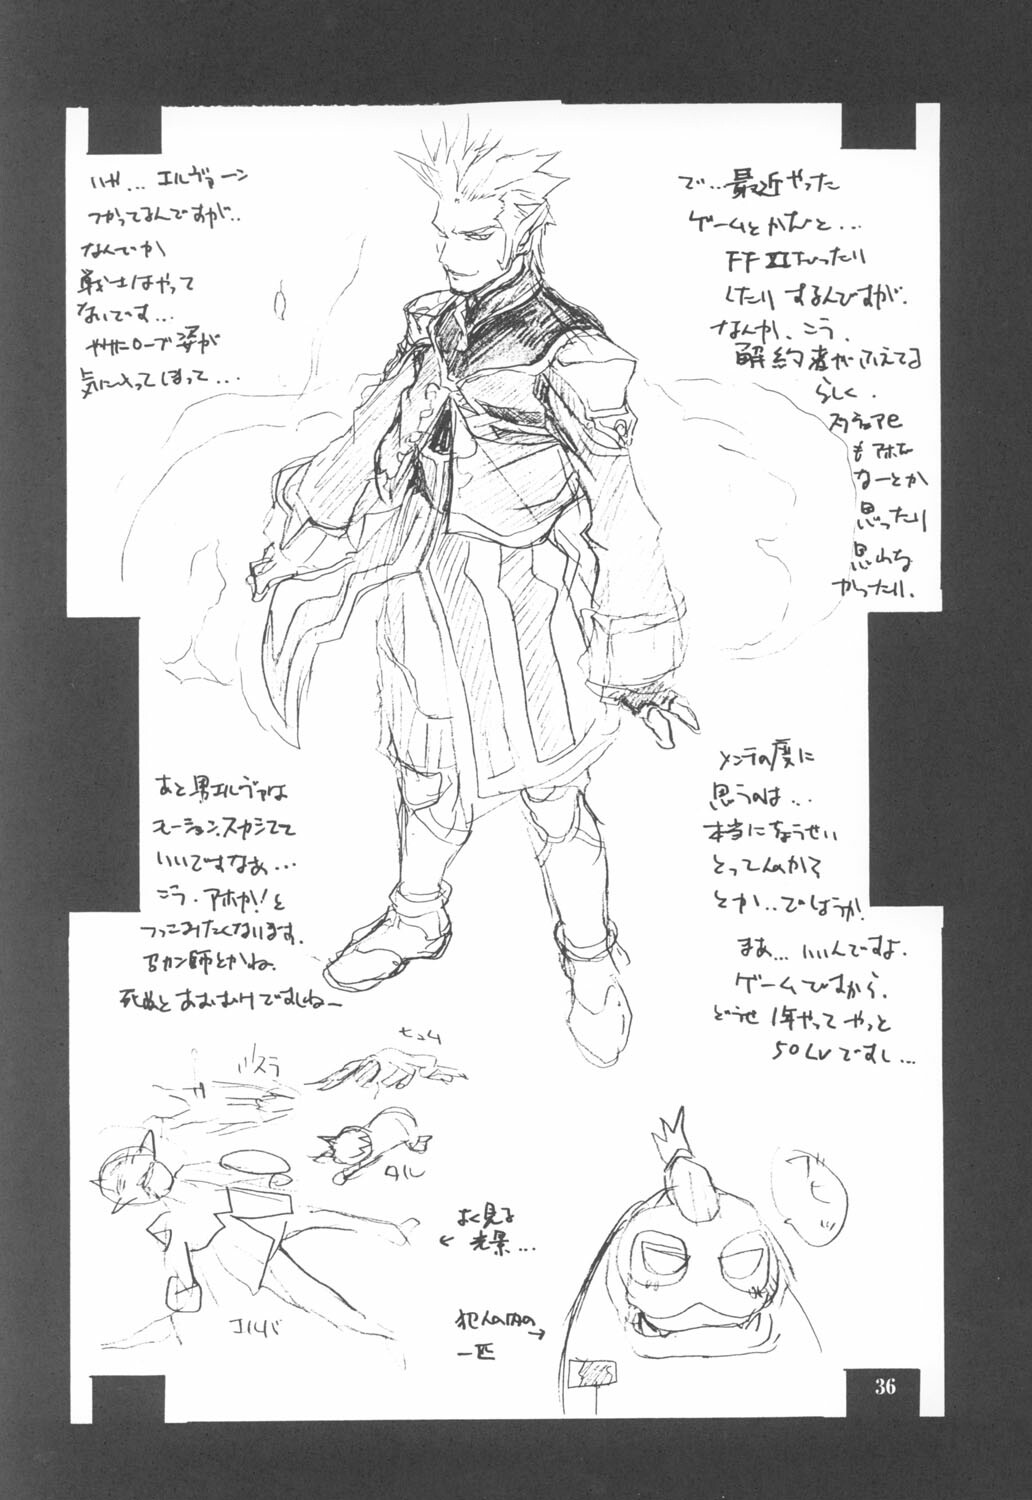 で‥最近やった
ゲームとかだと...
FFXIだったり
したりするんですが.
なんか、こう.
解約者がふえてる
らしく.
スクウェアe
もアホだ
なーとか
思ったり
思わな
かったり.
いや... エルヴァーン
つかってるんですが..
なんでか
戦士はやって
ないです...
やけにローブ姿が
気に入ってしまって...
メンテの度に
思うのは...
本当にちょうせい
とってんのか?
とか..でしょうか.
まあ...いいんですよ.
ゲームですから.
どうせ1年やってやっと
50Lvですし...
あと男エルヴァは
モーション、スカシてて
いいですなぁ...
こう、アホか!と
つっこみたくなります.
召カン師とかね.
死ぬとあおむけですしねー
ミスラ
ヒュム
タル
エルバ
よく見る
← 光景...
犯人の内の
一匹 →
36